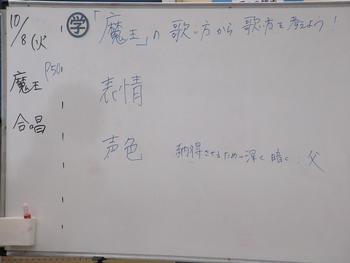 10/8(火)
魔王 P50
合唱
学 「魔王」の歌い方から歌い方を考えよう!
表情
声色 納得させるため→深く暗く:父